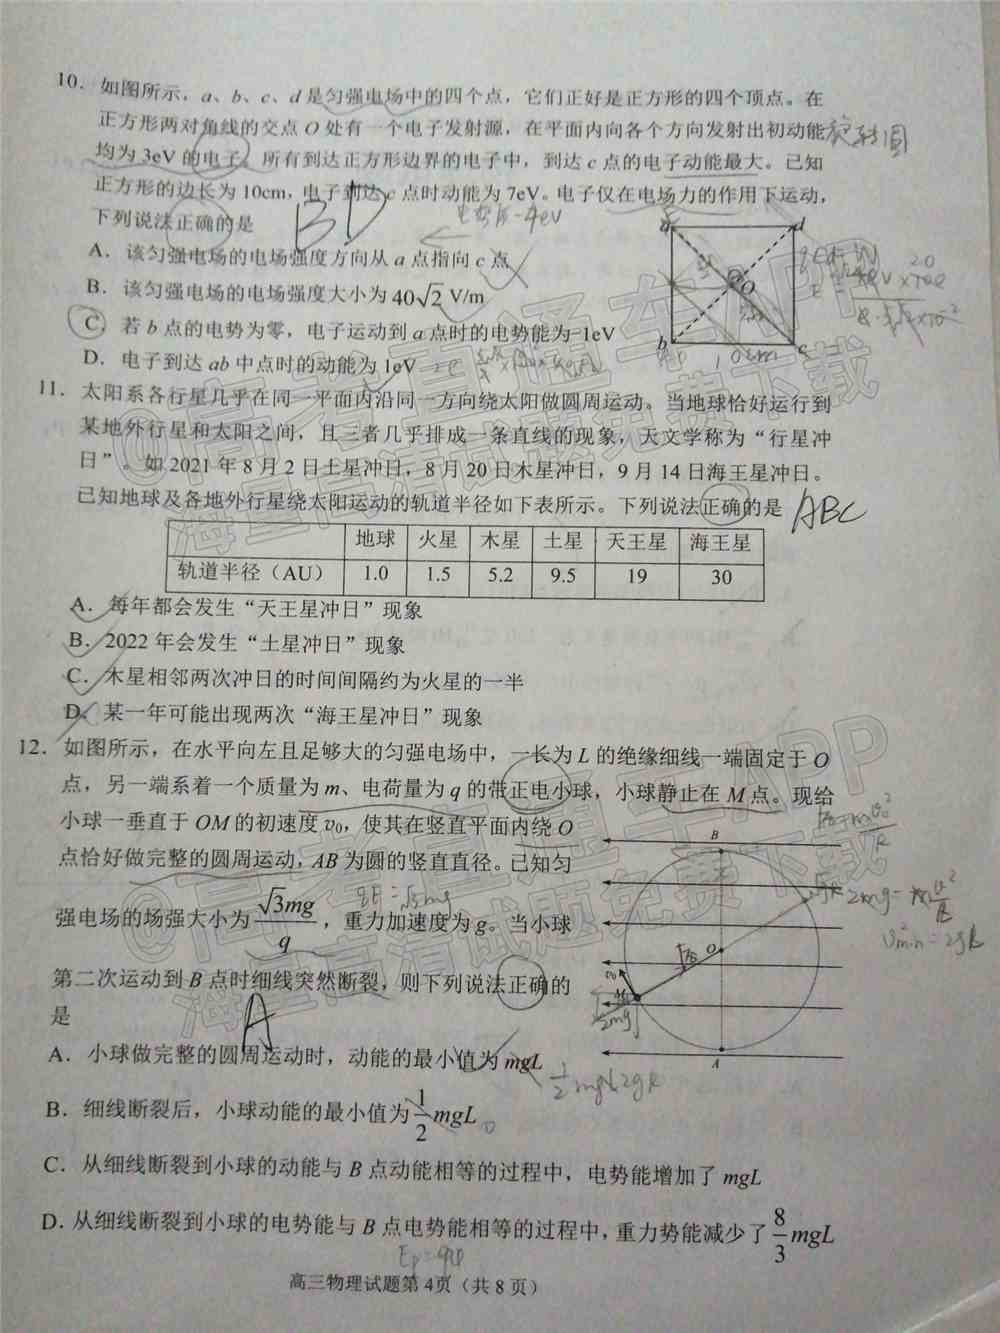 10. 如图所示，a、b、c、d是匀强电场中的四个点，它们正好是正方形的四个顶点。在
正方形两对角线的交点O处有一个电子发射源，在平面内向各个方向发射出初动能
均为3eV的电子。所有到达正方形边界的电子中，到达c点的电子动能最大。已知
正方形的边长为10cm，电子到达c点时动能为7eV。电子仅在电场力的作用下运动，
下列说法正确的是
BD
A. 该匀强电场的电场强度方向从a点指向c点
B. 该匀强电场的电场强度大小为40√2 V/m
C. 若b点的电势为零，电子运动到a点时的电势能为-1eV
D. 电子到达ab中点时的动能为1eV
a
d
O
b
c
10cm
11. 太阳系各行星几乎在同一平面内沿同一方向绕太阳做圆周运动。当地球恰好运行到
某地外行星和太阳之间，且三者几乎排成一条直线的现象，天文学称为“行星冲
日”。如2021年8月2日土星冲日，8月20日木星冲日，9月14日海王星冲日。
已知地球及各地外行星绕太阳运动的轨道半径如下表所示。下列说法正确的是
ABC
地球 火星 木星 土星 天王星 海王星
轨道半径（AU） 1.0 1.5 5.2 9.5 19 30
A. 每年都会发生“天王星冲日”现象
B. 2022年会发生“土星冲日”现象
C. 木星相邻两次冲日的时间间隔约为火星的一半
D. 某一年可能出现两次“海王星冲日”现象
12. 如图所示，在水平向左且足够大的匀强电场中，一长为L的绝缘细线一端固定于O
点，另一端系着一个质量为m、电荷量为q的带正电小球，小球静止在M点。现给
小球一垂直于OM的初速度v₀，使其在竖直平面内绕O
点恰好做完整的圆周运动，AB为圆的竖直直径。已知匀
强电场的场强大小为√3mg/q，重力加速度为g。当小球
第二次运动到B点时细线突然断裂，则下列说法正确的
是
A
A. 小球做完整的圆周运动时，动能的最小值为mgL
B. 细线断裂后，小球动能的最小值为1/2 mgL
C. 从细线断裂到小球的动能与B点动能相等的过程中，电势能增加了mgL
D. 从细线断裂到小球的电势能与B点电势能相等的过程中，重力势能减少了8/3 mgL
B
O
v₀
M
A
2mg
高三物理试题第4页（共8页）
@高考直通车APP
海量高清试题免费下载
@高考直通车APP
海量高清试题免费下载